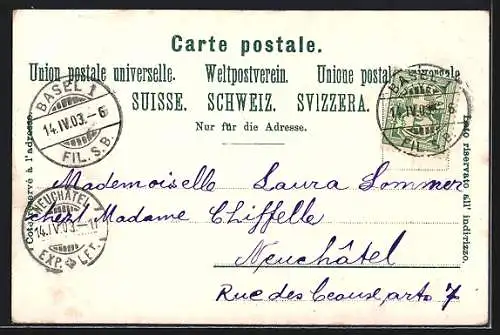 Carte postale.
Union postale universelle. Weltpostverein. Unione postale universale
SUISSE. SCHWEIZ. SVIZZERA.
Nur für die Adresse.
Côté réservé à l'adresse.
Lato riservato all' indirizzo.
BASEL 1
14.IV.03-6
FIL. S.B.
BASEL 1
14.IV.03-6
FIL. S.B.
NEUCHÂTEL
14.IV.03-11
EXP. LET.
Mademoiselle Laura Lommer
chez Madame Chiffelle
Neuchâtel
Rue des Beaux arts 7